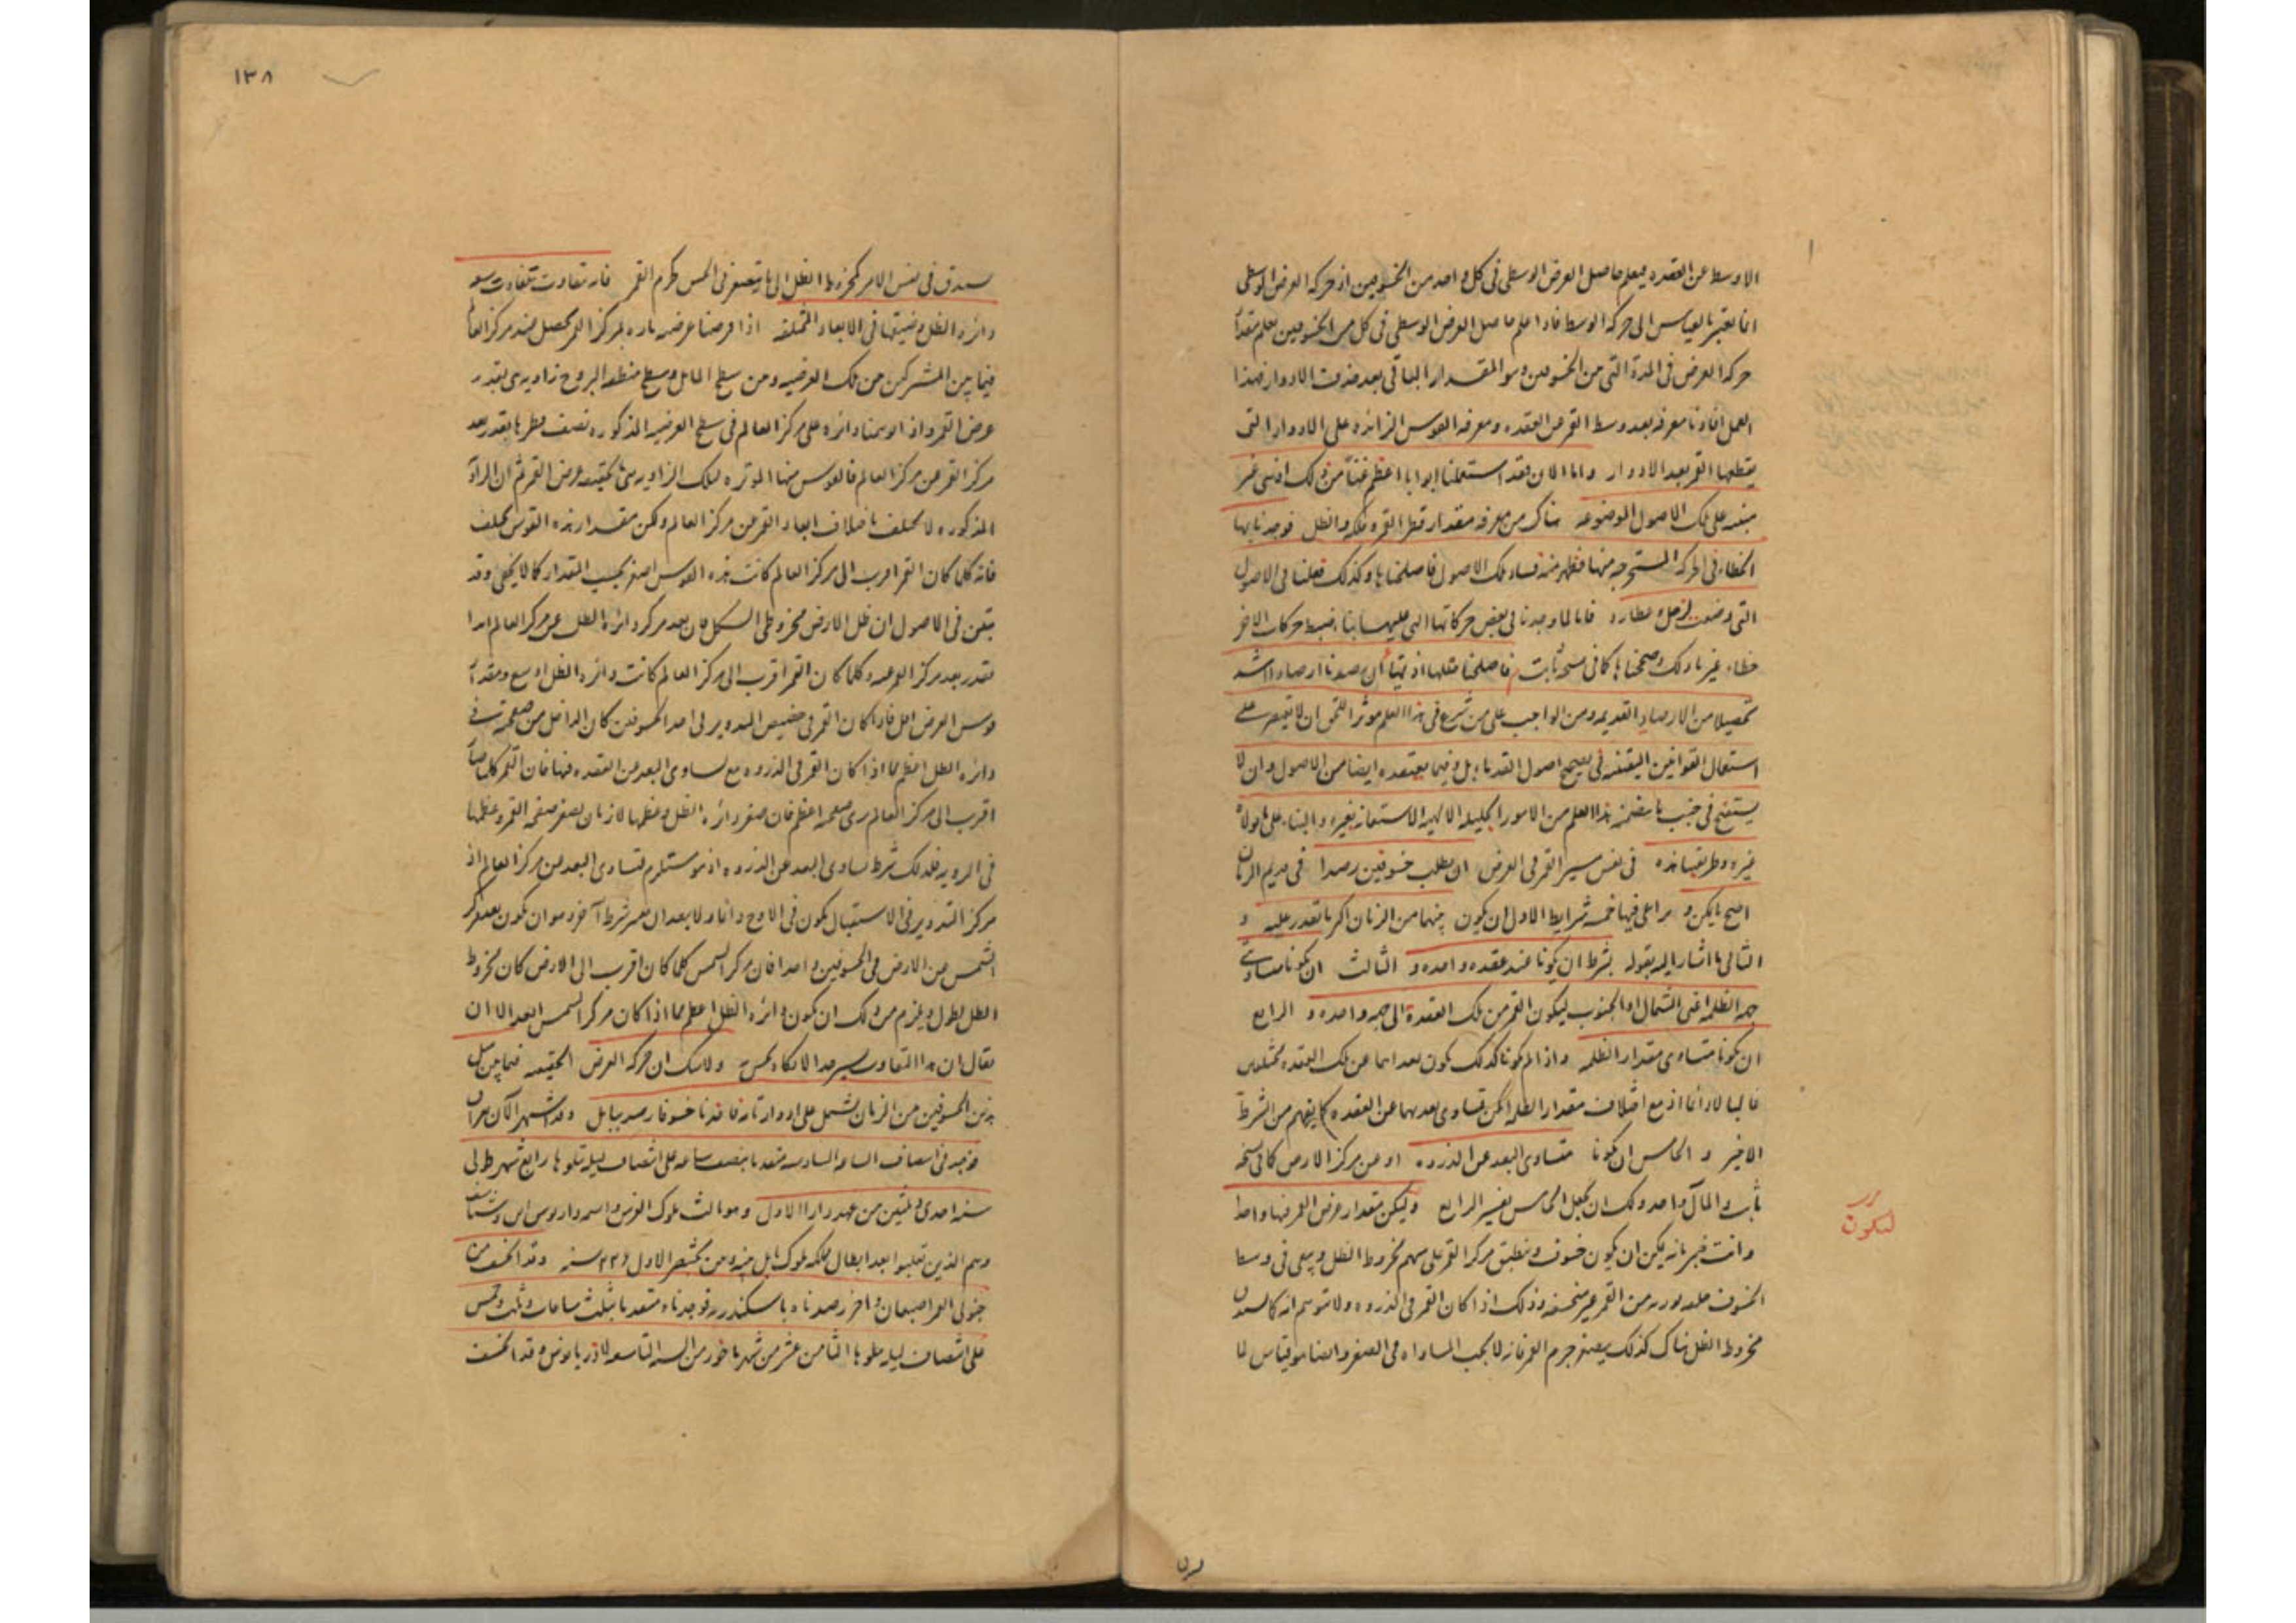 الاوسط عن العقده فيعلم حاصل العرض الوسطى فى كل واحد من الخسوفين اذ حركه العرض الوسطى
انما يعتبر بالقياس الى حركه الوسط فاذا علم حاصل العرض الوسطى فى كل من الخسوفين يعلم مقدار
حركه العرض فى المدة التى من الخسوفين وهو المقدار الباقى بعد حذف الادوار فهذا
العمل افادنا معرفه بعد وسط القمر عن العقده ومعرفه القوس الزائده على الادوار التى
يقطعها القمر بعد الادوار واما الان فقد استعملنا ابوابا اعظم غناً من ذلك اذ هى غير
مبنيه على تلك الاصول الموضوعه هناك من معرفه مقدار قطر القمر والظل فوجدنا بها
الخطاء فى الحركه المستخرجه منها فظهر منه فساد تلك الاصول فاصلحناها وكذلك فعلنا فى الاصول
التى وضعت لزحل وعطارد فانا لما وجدنا فى بعض حركاتها التى عليها بنا ضبط حركات الاخر
خطاء غيرنا ذلك وصححناها كما فى نسخه ثابت فاصلحنا مثلها اذ تهيأ أن رصدنا ارصادا اشد
تحصيلا من الارصاد القديمه ومن الواجب على من شرع فى هذا العلم موثرا للحق ان لا يقتصر على
استعمال القوانين اليقينيه فى تصحيح اصول القدماء بل وفيما يعتقده ايضا من الاصول وان لا
يستقبح فى جنب ما يتضمنه هذا العلم من الامور الجليله الالهيه الاستعانه بغيره والبناء على ما قوله
غيره وطريقنا هذه فى نفس مسير القمر فى العرض ان يطلب خسوفين رصدا فى قديم الزمان
اصح ما يمكن و يراعى فيها خمسه شرايط الاول ان يكون بينهما من الزمان اكثر ما نقدر عليه و
الثانى ما اشار اليه بقوله بشرط ان يكونا عند عقده واحده و الثالث ان يكونا متساوى
جهه الظلمه اعنى الشمال او الجنوب ليكون القمر من تلك العقدة الى جهه واحده و الرابع
ان يكونا متساوى مقدار الظلمه واذا لم يكونا كذلك يكون بعداهما عن تلك العقده مختلفين
غالبا لا دائما اذ مع اختلاف مقدار الظلمه يمكن تساوى بعديهما عن العقده كما يفهم من الشرط
الاخير و الخامس ان يكونا متساوى البعد عن الذروه او عن مركز الارض كما فى نسخه
ثابت والمآل واحد ولك ان تجعل الخامس تفسير الرابع وليكن مقدار عرض القمر فيها واحدا
وانت خبير بانه يمكن ان يكون خسوف وينطبق مركز القمر على سهم مخروط الظل ويبقى فى وسط
الخسوف حلقه نوريه من القمر غير منخسفه وذلك اذا كان القمر فى الذروه ولا تتوهم انه كما يستدق
مخروط الظل هناك كذلك يصغر جرم القمر فانه لا يجب المساواه فى الصغر وايضا هو قياس لما
لتكون
١٣٨
يستدق فى نفس الامر كمخروط الظل الى ما يصغر فى الحس كجرم القمر فانه تفاوت بتفاوت سعه
دائره الظل وضيقها فى الابعاد المختلفه اذا فرضنا عرضيه ماره بمركز القمر يحصل عند مركز العالم
فيما بين المشتركين من تلك العرضيه ومن سطح المائل وسطح منطقه البروج زاويه هى بقدر
عرض القمر واذا توهمنا دائره على مركز العالم فى سطح العرضيه المذكوره نصف قطرها بقدر بعد
مركز القمر من مركز العالم فالقوس منها الموتره لتلك الزاويه هى بحقيقه عرض القمر ثم ان الزاويه
المذكوره لا تختلف باختلاف ابعاد القمر من مركز العالم ولكن مقدار هذه القوس يختلف
فانه كلما كان القمر اقرب الى مركز العالم كانت هذه القوس اصغر بحسب المقدار كما لا يخفى وقد
تبين فى الاصول ان ظل الارض مخروطى الشكل فان بعد مركز دائره الظل عن مركز العالم ابدا
بقدر بعد مركز القمر عنه وكلما كان القمر اقرب الى مركز العالم كانت دائره الظل اوسع ومقدار
قوس العرض اقل فاذا كان القمر فى حضيض التدوير فى احد الخسوفين كان الداخل من صفحته فى
دائره الظل اعظم مما اذا كان القمر فى الذروه مع تساوى البعد من العقده فيها فان القمر كلما صار
اقرب الى مركز العالم يرى صفحته اعظم فان صغر دائره الظل وعظمها لازمان بصغر صفحه القمر وعظمها
فى الرويه فلذلك شرط تساوى البعد عن الذروه اذ هو مستلزم لتساوى البعد من مركز العالم اذ
مركز التدوير فى الاستقبال يكون فى الاوج واما ولا بعد ان يعتبر شرط آخر وهو ان يكون بعد مركز
الشمس من الارض فى الخسوفين واحدا فان مركز الشمس كلما كان اقرب الى الارض كان مخروط
الظل اطول ويلزم من ذلك ان يكون دائره الظل اعظم مما اذا كان مركز الشمس ابعد الا ان
يقال ان هذا التفاوت يسير جدا لا يكاد يحس ولا شك ان حركه العرض الحقيقيه فيما بين مثل
هذين الخسوفين من الزمان يشتمل على ادوار تامه فاخذنا خسوفا رصد ببابل وقد اشتهر الآن بعراق
فوجد فى انتصاف الساعه السادسه متقدما بنصف ساعه على انتصاف ليله تتلوها رابع شهر طوبى
سنه احدى وثلثين من عهد دارا الاول وهو ثالث ملوك الفرس واسمه داريوس ابن وشتاسف
وهم الذين تغلبوا بعد ابطال مملكه ملوك بابل منه ومن بختنصر الاول ٢٢٦ سنه وقد انخسف من
جنوبى القمر اصبعان واخر رصدناه باسكندريه فوجدناه متقدما بثلث ساعات وثلث وخمس
على انتصاف ليله تتلوها الثامن عشر من شهر باخور من السنه التاسعه لاذريانوس وقد انخسف